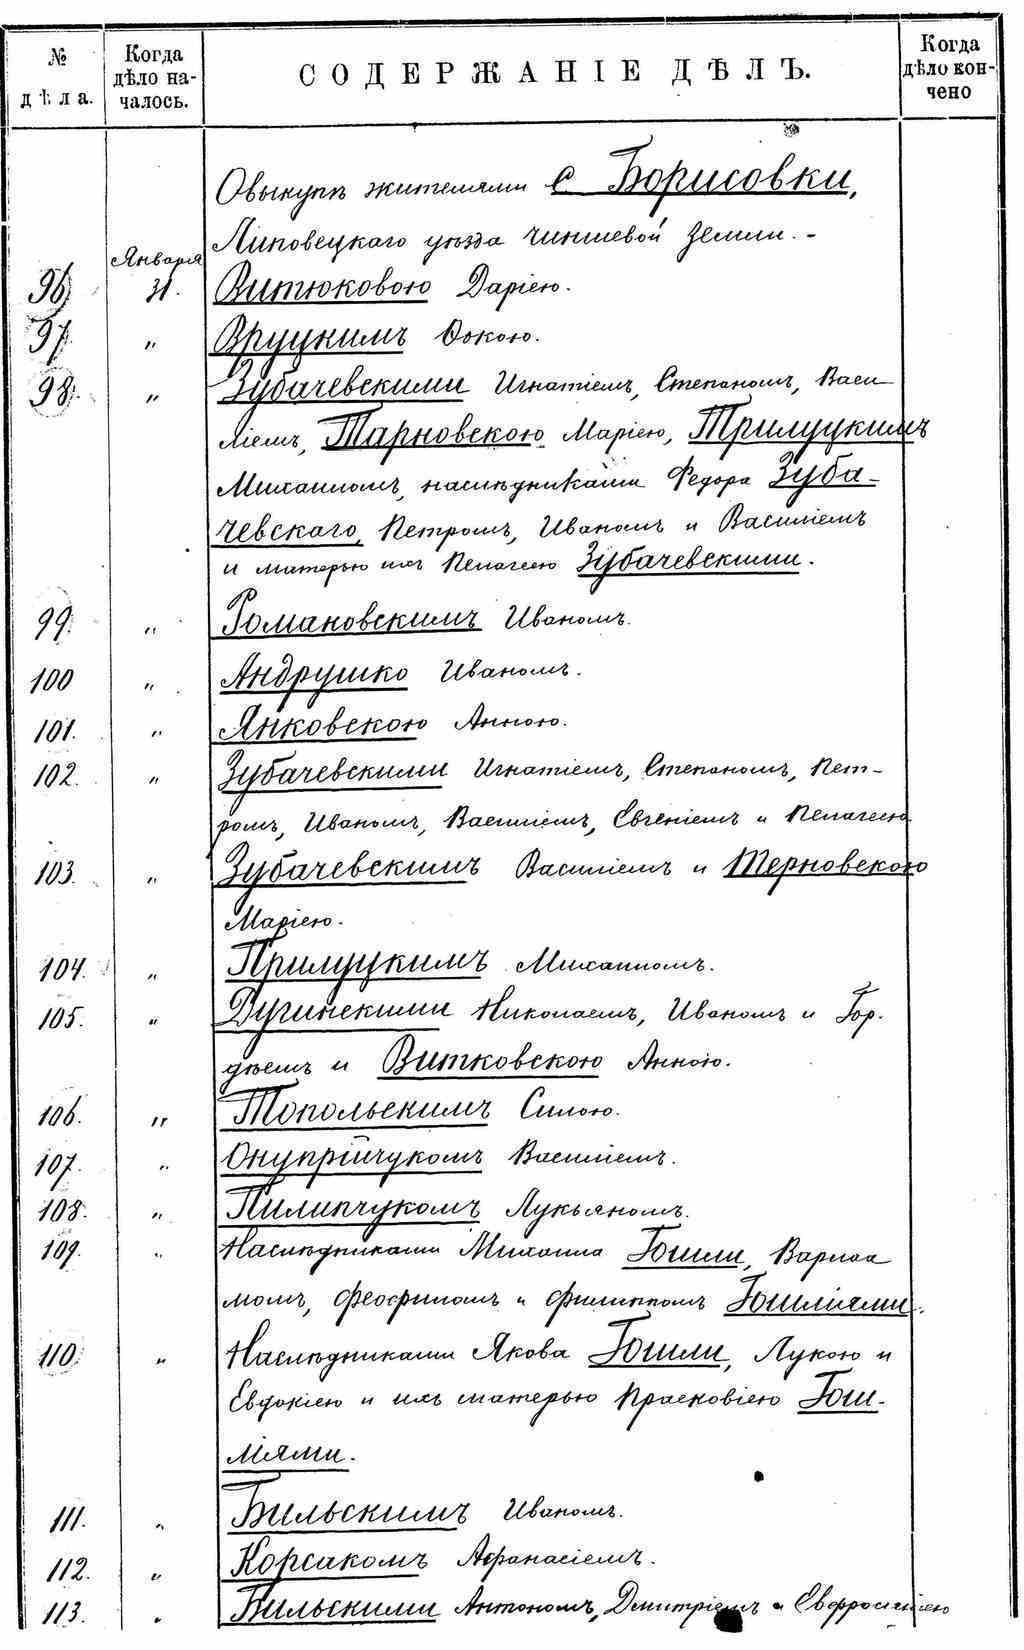 № дѣла. Когда дѣло на-чалось. СОДЕРЖАНІЕ ДѢЛЪ. Когда дѣло кон-чено
О выкупѣ жителями с Борисовки,
Липовецкаго уѣзда чиншевой земли. -
96 Января 31. Витюковою Даріею.
97 " Вруцкимъ Фокою.
98 " Зубачевскими Игнатіемъ, Степаномъ, Васи
ліемъ, Тарновскою Маріею, Трилуцкимъ
Михаиломъ, наслѣдниками Федора Зуба-
чевскаго, Петромъ, Иваномъ и Василіемъ
и матерью ихъ Пелагеею Зубачевскими.
99. " Романовскимъ Иваномъ.
100 " Андрушко Иваномъ.
101. " Янковскою Анною.
102. " Зубачевскими Игнатіемъ, Степаномъ, Пет-
ромъ, Иваномъ, Василіемъ, Евгеніемъ и Пелагеею
103. " Зубачевскимъ Василіемъ и Терновскою
Маріею.
104. " Прилуцкимъ Михаиломъ.
105. " Дугинскими Николаемъ, Иваномъ и Гор.
дѣемъ и Витковскою Анною.
106. " Топольскимъ Силою.
107. " Онуприйчукомъ Василіемъ.
108. " Пилипчукомъ Лукьяномъ.
109. " Наслѣдниками Михаила Гошли, Варлаа
момъ, Феофиломъ и Филиппомъ Гошлями.
110 " Наслѣдниками Якова Гошли, Лукою и
Евдокіею и ихъ матерью Прасковіею Гош-
лями.
111. " Бильскимъ Иваномъ.
112. " Корсакомъ Афанасіемъ.
113. " Бильскими Антономъ, Дмитріемъ и Евфросиніею